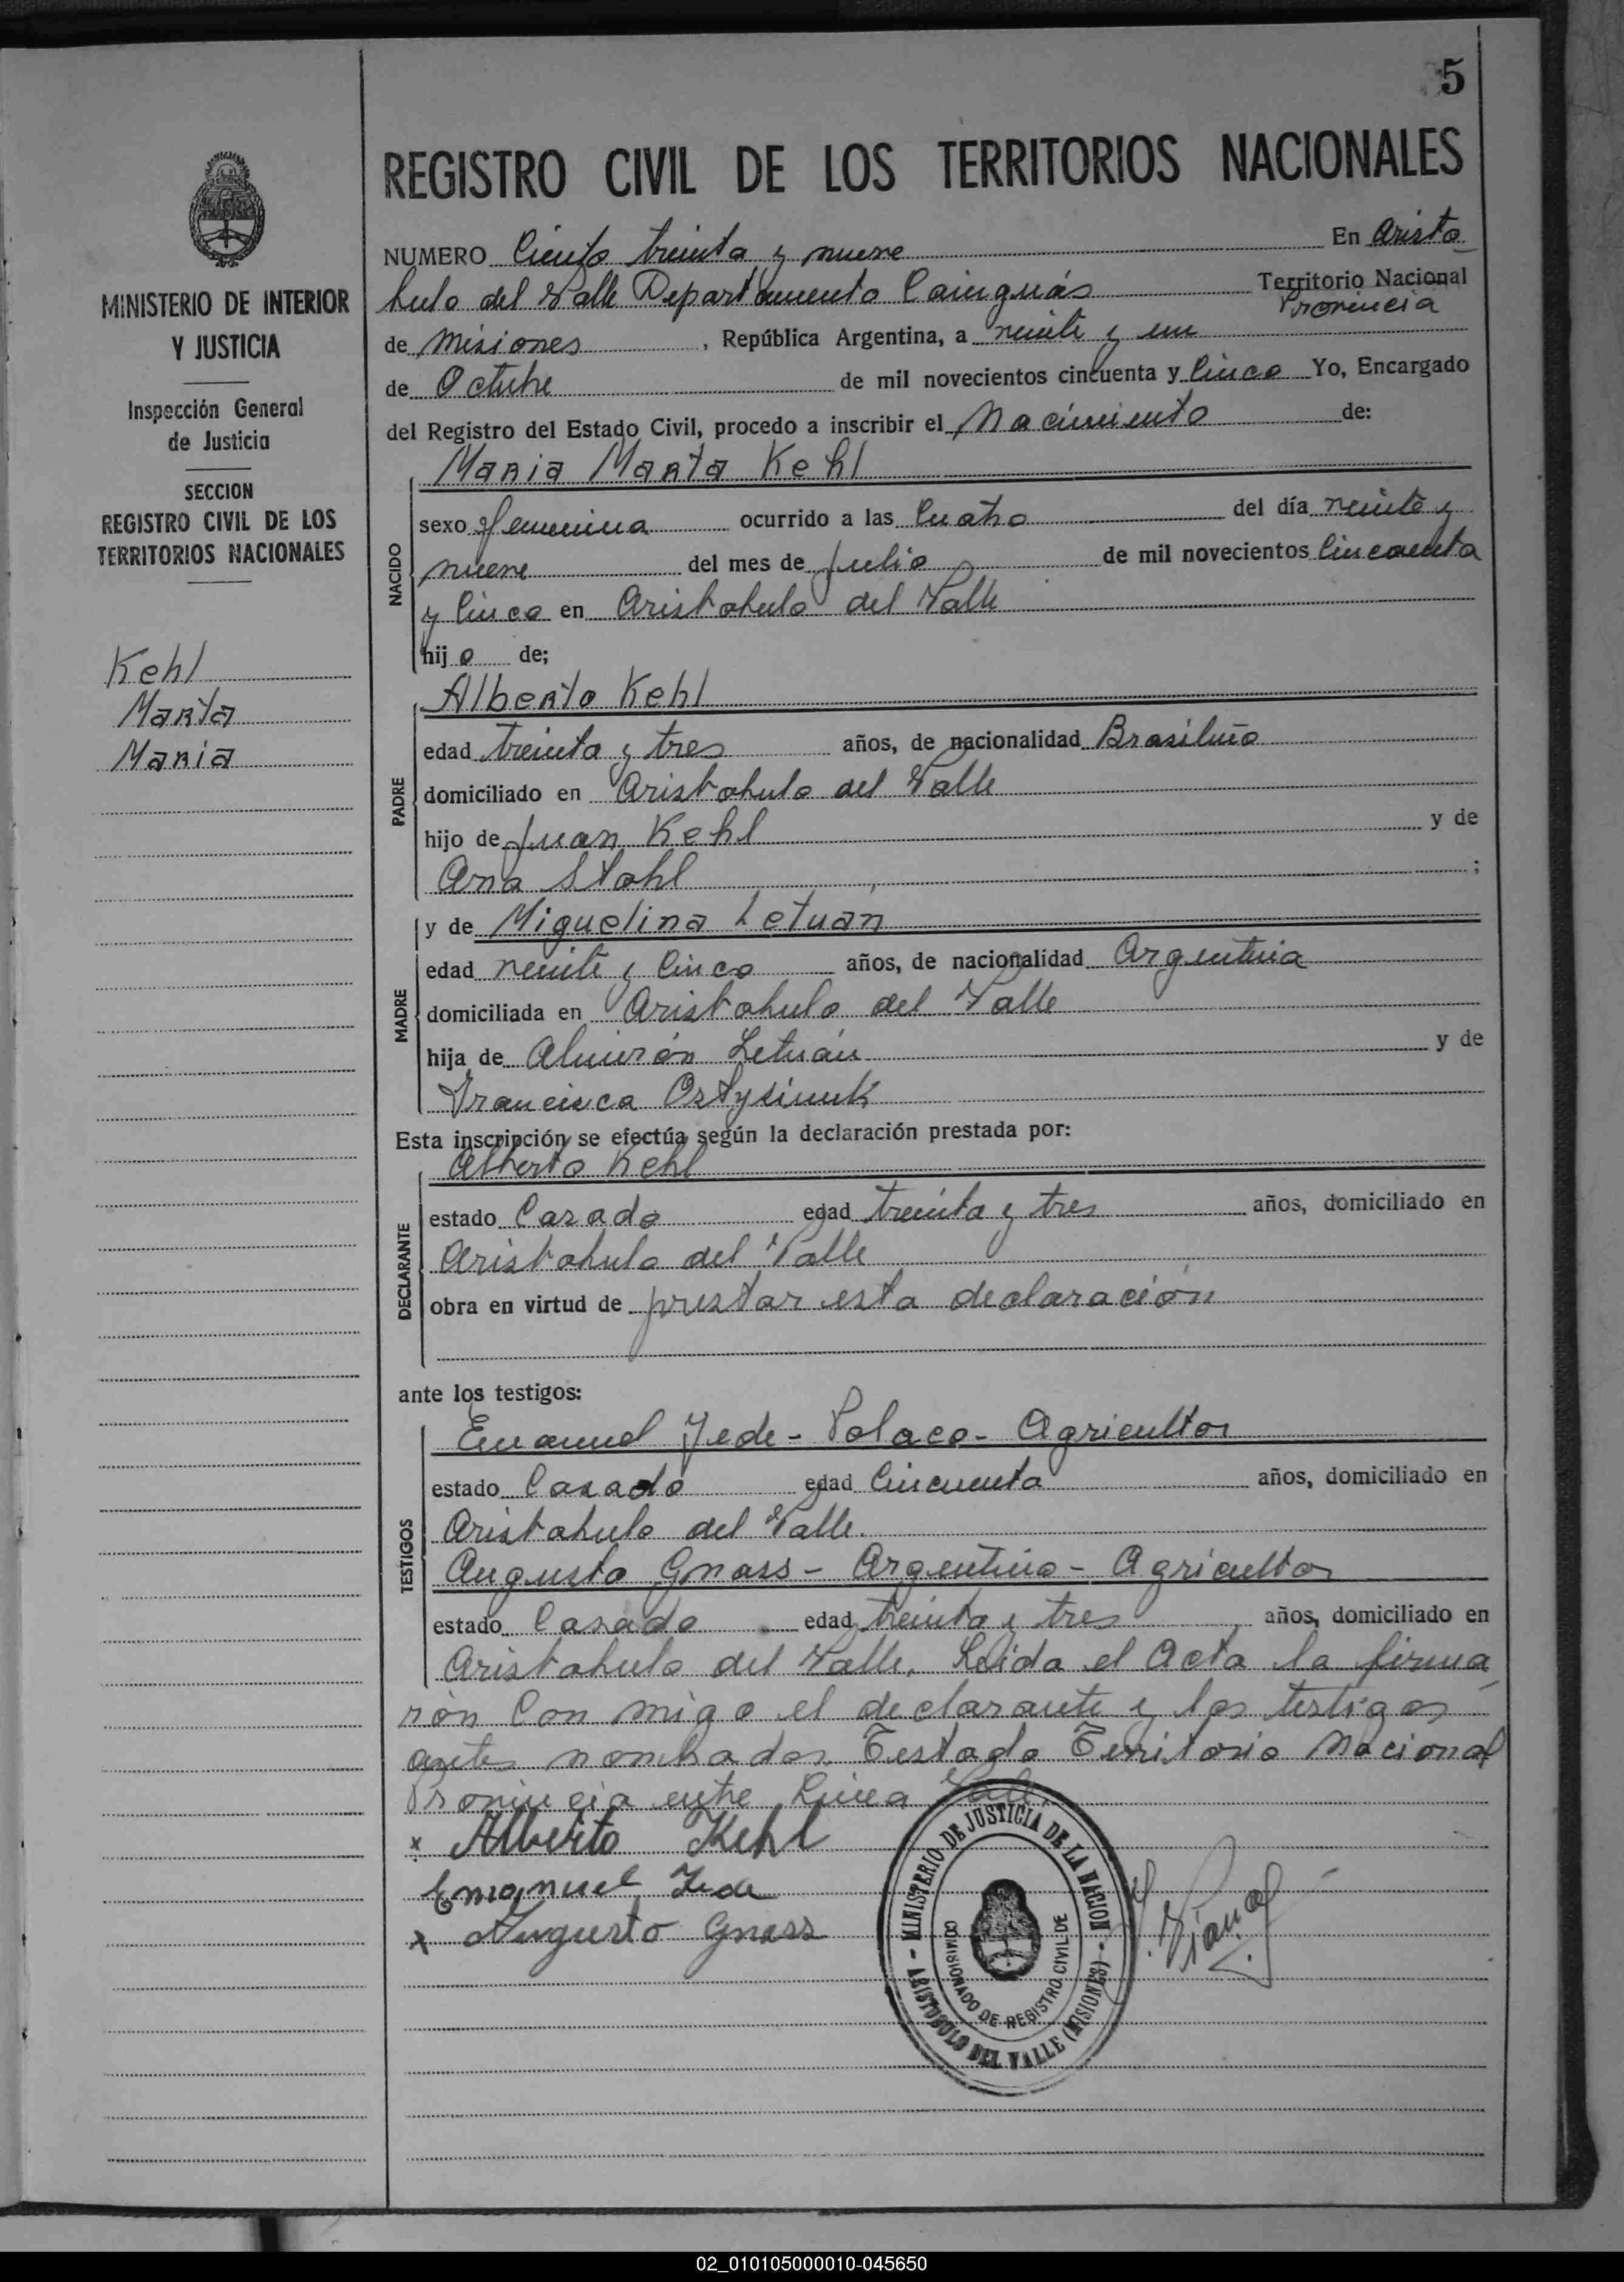 5
REGISTRO CIVIL DE LOS TERRITORIOS NACIONALES
MINISTERIO DE INTERIOR
Y JUSTICIA
Inspección General
de Justicia
SECCION
REGISTRO CIVIL DE LOS
TERRITORIOS NACIONALES
Kehl
Marta
Maria
NUMERO Ciento treinta y nueve En Aristo
bulo del Valle Departamento Cainguás Territorio Nacional
Provincia
de Misiones, República Argentina, a veinte y un
de Octubre de mil novecientos cincuenta y Cinco Yo, Encargado
del Registro del Estado Civil, procedo a inscribir el Nacimiento de:
Maria Marta Kehl
NACIDO
sexo femenina ocurrido a las Cuatro del día veinte y
nueve del mes de Julio de mil novecientos Cincuenta
y Cinco en Aristobulo del Valle
hijo de;
Alberto Kehl
PADRE
edad treinta y tres años, de nacionalidad Brasileño
domiciliado en Aristobulo del Valle
hijo de Juan Kehl y de
Ana Stahl ;
y de Miguelina Letuán
MADRE
edad veinte y Cinco años, de nacionalidad Argentina
domiciliada en Aristobulo del Valle
hija de Almirón Letuán y de
Francisca
Esta inscripción se efectúa según la declaración prestada por:
Alberto Kehl
DECLARANTE
estado Casado edad treinta y tres años, domiciliado en
Aristobulo del Valle
obra en virtud de prestar esta declaración
ante los testigos:
TESTIGOS
Emanuel Jede - Polaco - Agricultor
estado Casado edad Cincuenta años, domiciliado en
Aristobulo del Valle.
Augusto Gnass - Argentino - Agricultor
estado Casado edad treinta y tres años, domiciliado en
Aristobulo del Valle. Leida el Acta la firma
rón Con migo el declarante y los testigos
antes nombrados Testado Territorio Nacional
Provincia entre Linea Vale.
x Alberto Kehl
Emanuel Jede
x Augusto Gnass
MINISTERIO DE JUSTICIA DE LA NACION
COMISIONADO DE REGISTRO CIVIL DE
ARISTOBULO DEL VALLE (MISIONES)
02_010105000010-045650